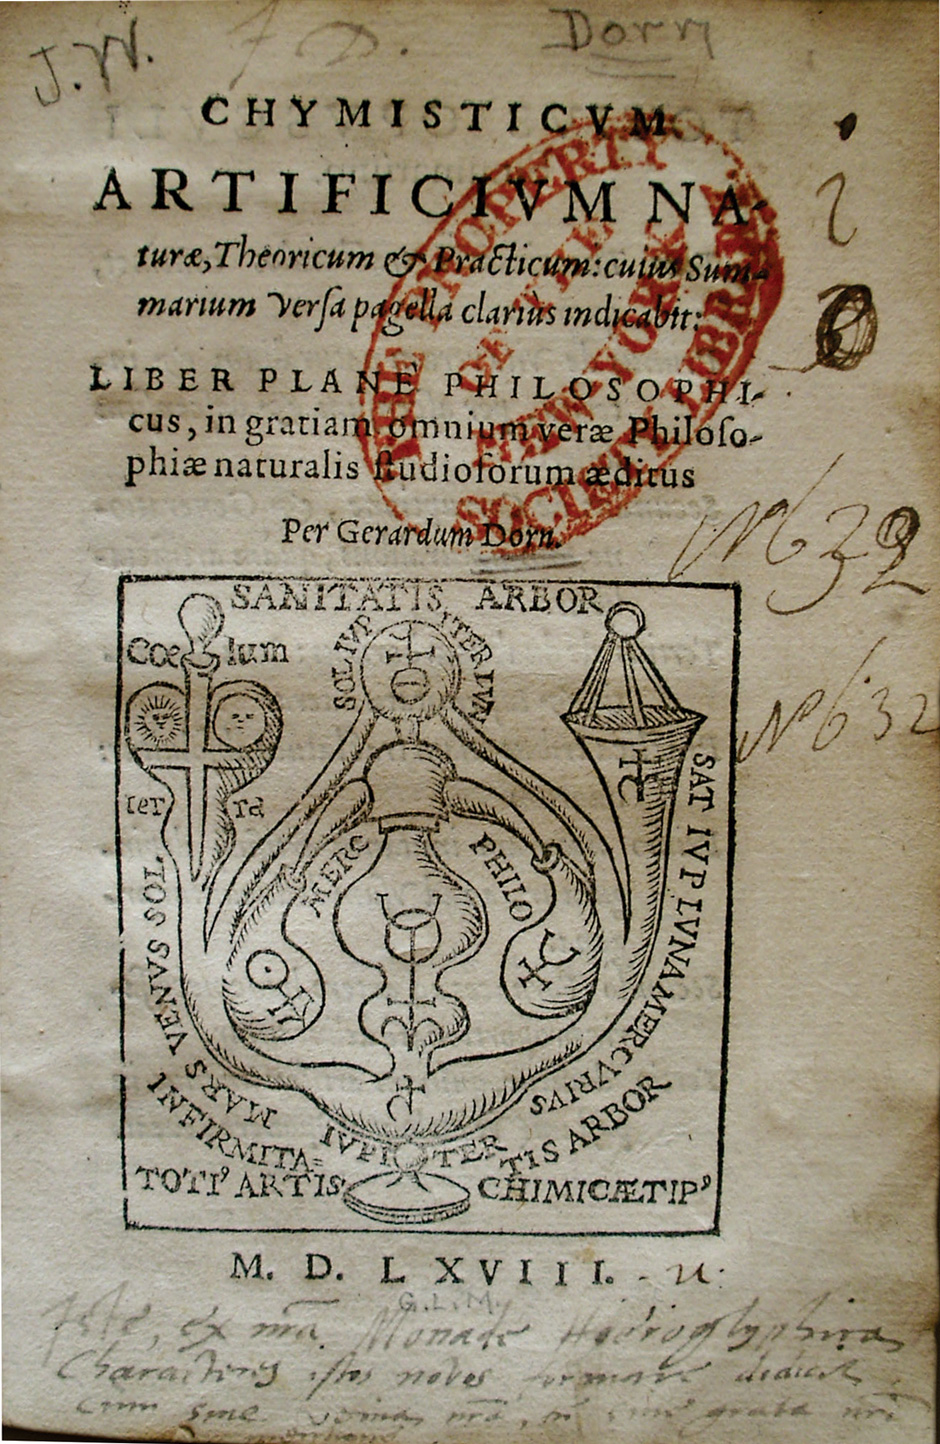 J. W.
Dorn
CHYMISTICVM
ARTIFICIVM NA-
turæ, Theoricum & Practicum: cuius Sum-
marium versa pagella clariùs indicabit:
LIBER PLANE PHILOSOPHI-
cus, in gratiam omnium veræ Philoso-
phiæ naturalis studiosorum æditus
Per Gerardum Dorn.
THE PROPERTY
OF THE
NEW YORK
SOCIETY LIBRARY
No 632
No 632
SANITATIS ARBOR
Coelum
terra
SOL IVPITER LVN
MERC PHILO
SAT IVP LVNA MERCVRIVS
SOL SVAS VENVS MARS
IVPITER
INFIRMITATIS ARBOR
TOTI⁹ ARTIS CHIMICÆ TIP⁹
M. D. LXVIII.
G.L.M.
Iste, ex nrā Monade Hieroglyphica
Characteres istos novos formare didicit
cum sine